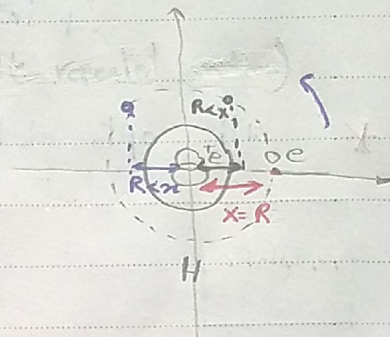 R<x
e
e
R<x
X=R
H